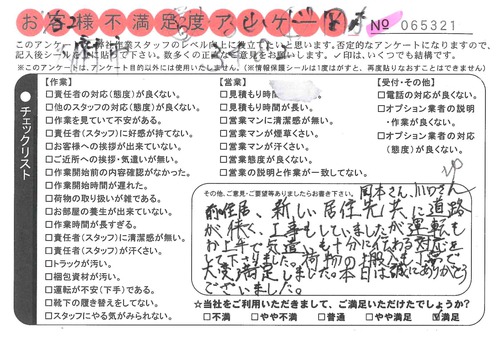 お客様不満足度アンケート
№ 065321
このアンケートは弊社作業スタッフのレベル向上に役立てたいと思います。否定的なアンケートになりますので、
記入後シールを上に貼って下さい。数多くの正直なご意見をお願いします。✓印は、いくつでも結構です。
※このアンケートは、アンケート目的以外には使用いたしません。(※情報保護シールは1度はがすと、再度貼りなおすことはできません)
チェックリスト
【作業】
□責任者の対応(態度)が良くない。
□他のスタッフの対応(態度)が良くない。
□作業を見ていて不安がある。
□責任者(スタッフ)に好感が持てない。
□お客様への挨拶が出来ていない。
□ご近所への挨拶・気遣いが無い。
□作業開始前の内容確認がなかった。
□作業開始時間が遅れた。
□荷物の取り扱いが雑である。
□お部屋の養生が出来ていない。
□作業時間が長すぎる。
□責任者(スタッフ)に清潔感が無い。
□責任者(スタッフ)が汗くさい。
□トラックが汚い。
□梱包資材が汚い。
□運転が不安(下手)である。
□靴下の履き替えをしてない。
□スタッフにやる気がみられない。
【営業】
□見積もり時間
□見積もり時間が長い。
□営業マンに清潔感が無い。
□営業マンが煙草くさい。
□営業マンが汗くさい。
□営業態度が良くない。
□営業の説明と作業が一致してない。
【受付・その他】
□電話の対応が良くない。
□オプション業者の説明
・作業が良くない。
□オプション業者の対応
(態度)が良くない。
その他、ご意見・ご要望等ありましたらお書き下さい。
岡本さん、川口さん
前住居、新しい居住先共に道路
が狭く、工事もしていましたが運転も
お上手で気遣いも十分に伝わる対応を
して下さりました。荷物の搬入も丁寧で
大変満足しました。本日は誠にありがとう
ございました。
☆当社をご利用いただきまして、ご満足いただけたでしょうか?
□不満 □やや不満 □普通 □やや満足 ☑満足